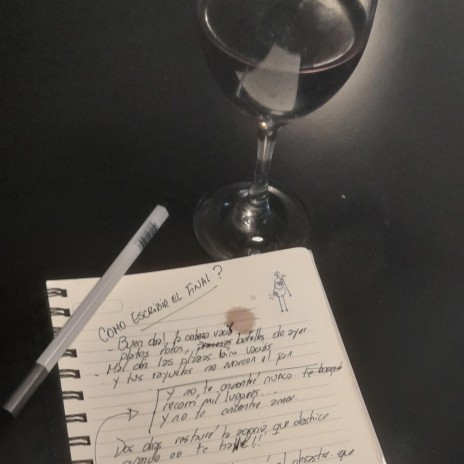 COMO ESCRIBIR EL FINAL?
- Buen día!, la cabeza vacía
platos rotos, botellas de ayer
- Mal día las plazas vacías
y tus rayuelas no marcan el
y no, te encontré nunca te busqué
recorrí mil lugares....
y no te encontré amor.
Dos días restauré la agonía que deshice
cuando no te hallé!!
el desastre que